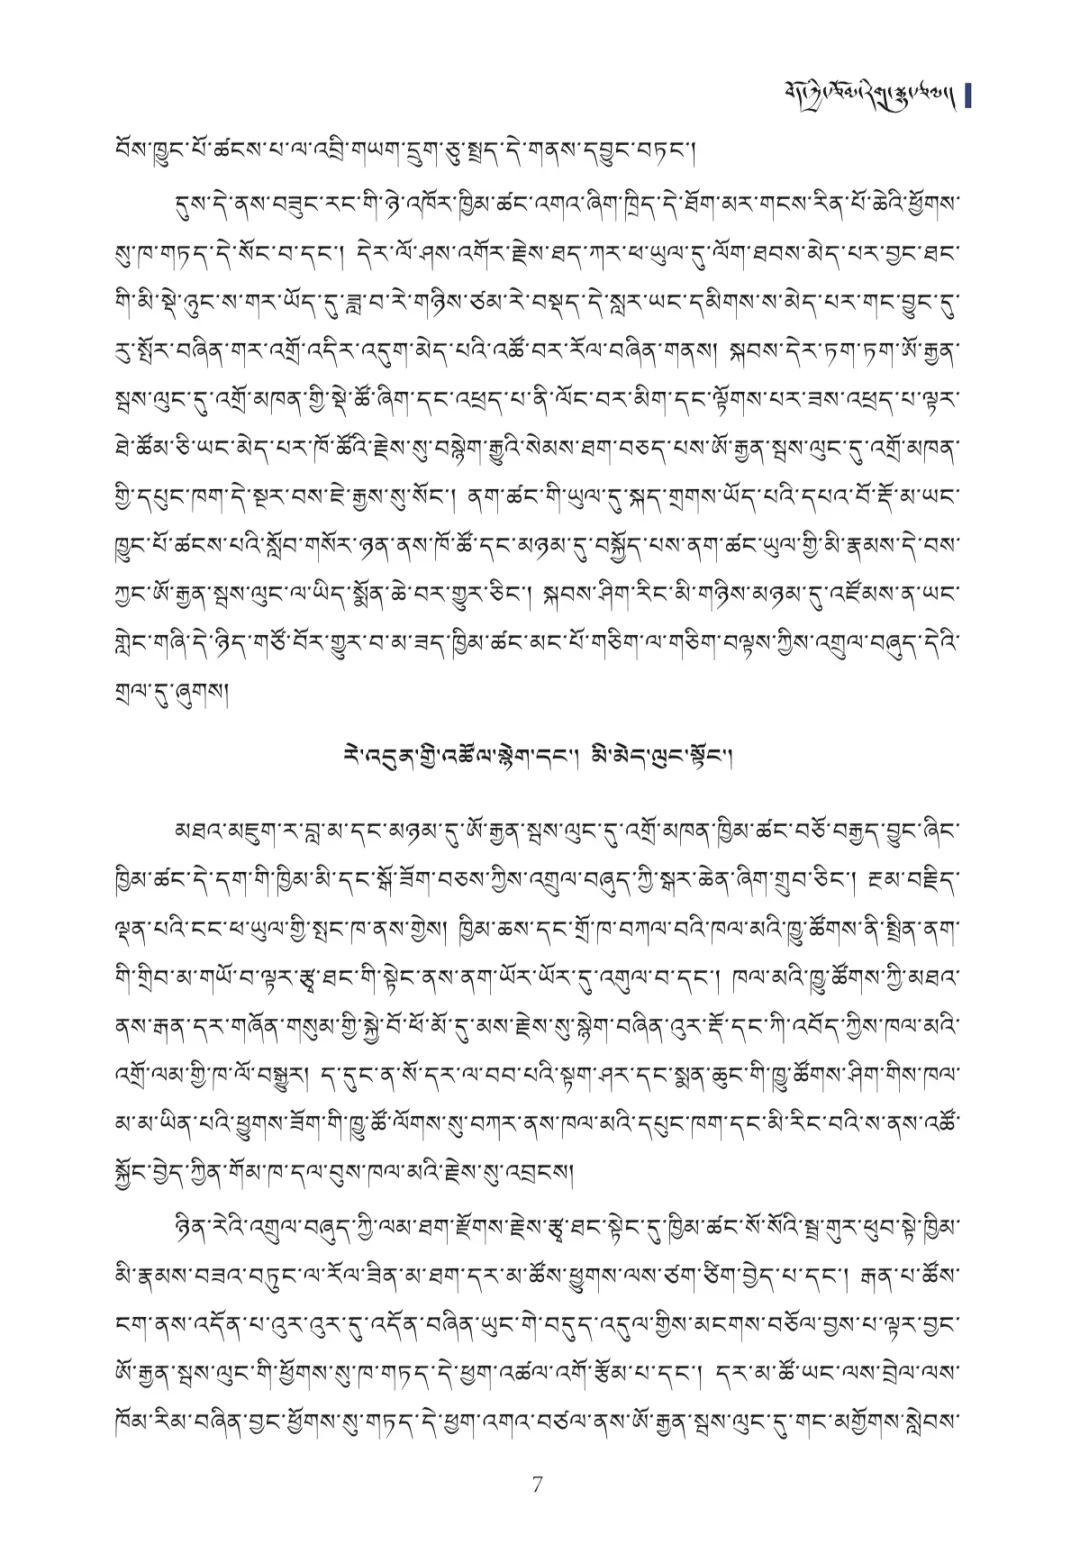 བོས་ཁྱུང་པོ་ཚངས་པ་ལ་འབྲི་གཡག་དྲུག་ཅུ་སྤྲད་དེ་གནས་དབྱུང་བཏང་།
དུས་དེ་ནས་བཟུང་རང་གི་ཉེ་འཁོར་ཁྱིམ་ཚང་འགའ་ཞིག་ཁྲིད་དེ་ཐོག་མར་གངས་རིན་པོ་ཆེའི་ཕྱོགས་
སུ་ཁ་གཏད་དེ་སོང་བ་དང་། དེར་ལོ་ཤས་འགོར་རྗེས་ཐད་ཀར་ཕ་ཡུལ་དུ་ལོག་ཐབས་མེད་པར་བྱང་ཐང་
གི་མི་སྡེ་ཉུང་ས་གར་ཡོད་དུ་ཟླ་བ་རེ་གཉིས་ཙམ་རེ་བསྡད་དེ་སླར་ཡང་དམིགས་ས་མེད་པར་གང་བྱུང་དུ་
རུ་སྤོར་བཞིན་གར་འགྲོ་འདིར་འདུག་མེད་པའི་འཚོ་བར་རོལ་བཞིན་གནས། སྐབས་དེར་ཏག་ཏག་ཨོ་རྒྱན་
སྦས་ལུང་དུ་འགྲོ་མཁན་གྱི་སྡེ་ཚོ་ཞིག་དང་འཕྲད་པ་ནི་ལོང་བར་མིག་དང་ལྟོགས་པར་ཟས་འཕྲད་པ་ལྟར་
ཐེ་ཚོམ་ཅི་ཡང་མེད་པར་ཁོ་ཚོའི་རྗེས་སུ་བསྙེག་རྒྱུའི་སེམས་ཐག་བཅད་པས་ཨོ་རྒྱན་སྦས་ལུང་དུ་འགྲོ་མཁན་
གྱི་དཔུང་ཁག་དེ་སྔར་བས་ཇེ་རྒྱས་སུ་སོང་། ནག་ཚང་གི་ཡུལ་དུ་སྐད་གྲགས་ཡོད་པའི་དཔའ་བོ་རྡོ་མ་ཡང་
ཁྱུང་པོ་ཚངས་པའི་སློབ་གསོར་ཉན་ནས་ཁོ་ཚོ་དང་མཉམ་དུ་བསྐྱོད་པས་ནག་ཚང་ཡུལ་གྱི་མི་རྣམས་དེ་བས་
ཀྱང་ཨོ་རྒྱན་སྦས་ལུང་ལ་ཡིད་སྨོན་ཆེ་བར་གྱུར་ཅིང་། སྐབས་ཤིག་རིང་མི་གཉིས་མཉམ་དུ་འཛོམས་ན་ཡང་
གླེང་གཞི་དེ་ཉིད་གཙོ་བོར་གྱུར་བ་མ་ཟད་ཁྱིམ་ཚང་མང་པོ་གཅིག་ལ་གཅིག་བལྟས་ཀྱིས་འགྲུལ་བཞུད་དེའི་
གྲལ་དུ་ཞུགས།
རེ་འདུན་གྱི་འཚོལ་སྙེག་དང་། མི་མེད་ལུང་སྟོང་།
མཐའ་མཇུག་ར་བླ་མ་དང་མཉམ་དུ་ཨོ་རྒྱན་སྦས་ལུང་དུ་འགྲོ་མཁན་ཁྱིམ་ཚང་བཅོ་བརྒྱད་བྱུང་ཞིང་
ཁྱིམ་ཚང་དེ་དག་གི་ཁྱིམ་མི་དང་སྒོ་ཟོག་བཅས་ཀྱིས་འགྲུལ་བཞུད་ཀྱི་སྒར་ཆེན་ཞིག་གྲུབ་ཅིང་། རྔམ་བརྗིད་
ལྡན་པའི་ངང་ཕ་ཡུལ་གྱི་སྤང་ཁ་ནས་གྱེས། ཁྱིམ་ཆས་དང་གྲོ་ཁ་བཀལ་བའི་ཁལ་མའི་ཁྱུ་ཚོགས་ནི་སྤྲིན་ནག་
གི་གྲིབ་མ་གཡོ་བ་ལྟར་རྩྭ་ཐང་གི་སྟེང་ནས་ནག་ཡོར་ཡོར་དུ་འགུལ་བ་དང་། ཁལ་མའི་ཁྱུ་ཚོགས་ཀྱི་མཐའ་
ནས་རྒན་དར་གཞོན་གསུམ་གྱི་སྐྱེ་བོ་ཕོ་མོ་དུ་མས་རྗེས་སུ་སྙེག་བཞིན་འུར་རྡོ་དང་ཀི་འབོད་ཀྱིས་ཁལ་མའི་
འགྲོ་ལམ་གྱི་ཁ་ལོ་བསྒྱུར། ད་དུང་ན་སོ་དར་ལ་བབ་པའི་སྟག་ཤར་དང་སྨན་ཆུང་གི་ཁྱུ་ཚོགས་ཤིག་གིས་ཁལ་
མ་མ་ཡིན་པའི་ཕྱུགས་ཟོག་གི་ཁྱུ་ཚོ་ལོགས་སུ་བཀར་ནས་ཁལ་མའི་དཔུང་ཁག་དང་མི་རིང་བའི་ས་ནས་འཚོ་
སྐྱོང་བྱེད་ཀྱིན་གོམ་ཁ་དལ་བུས་ཁལ་མའི་རྗེས་སུ་འབྲངས།
ཉིན་རེའི་འགྲུལ་བཞུད་ཀྱི་ལམ་ཐག་རྫོགས་རྗེས་རྩྭ་ཐང་སྟེང་དུ་ཁྱིམ་ཚང་སོ་སོའི་སྦྲ་གུར་ཕུབ་སྟེ་ཁྱིམ་
མི་རྣམས་བཟའ་བཏུང་ལ་རོལ་ཟིན་མ་ཐག་དར་མ་ཚོས་ཕྱུགས་ལས་ཙག་ཙིག་བྱེད་པ་དང་། རྒན་པ་ཚོས་
ངག་ནས་འདོན་པ་འུར་འུར་དུ་འདོན་བཞིན་ཡུང་གེ་བདུད་འདུལ་གྱིས་མངགས་བཅོལ་བྱས་པ་ལྟར་བྱང་
ཨོ་རྒྱན་སྦས་ལུང་གི་ཕྱོགས་སུ་ཁ་གཏད་དེ་ཕྱག་འཚལ་འགོ་རྩོམ་པ་དང་། དར་མ་ཚོ་ཡང་ལས་བྲེལ་ལས་
ཁོམ་རིམ་བཞིན་བྱང་ཕྱོགས་སུ་གཏད་དེ་ཕྱག་འགའ་བཙལ་ནས་ཨོ་རྒྱན་སྦས་ལུང་དུ་གང་མགྱོགས་སླེབས་
7